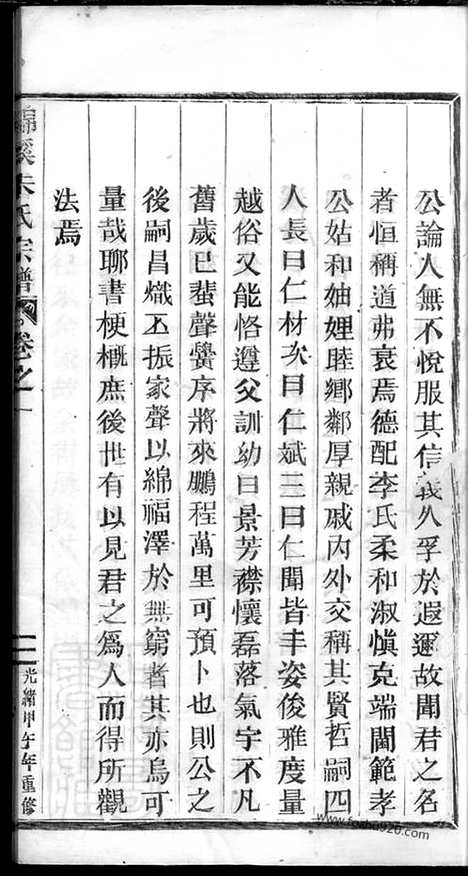 公論人無不悅服其信義久孚於遐邇故聞君之名
者恒稱道弗衰焉德配李氏柔和淑愼克端閫範孝
公姑和妯娌睦鄉鄰厚親戚內外交稱其賢哲嗣四
人長曰仁材次曰仁斌三曰仁聞皆丰姿俊雅度量
越俗又能恪遵父訓幼曰景芳襟懷磊落氣宇不凡
舊歲已蜚聲黌序將來鵬程萬里可預卜也則公之
後嗣昌熾丕振家聲以綿福澤於無窮者其亦烏可
量哉聊書梗槪庶後世有以見君之爲人而得所觀
法焉
朱氏宗譜
卷之一
光緒甲午年重修
www.foshu920.com